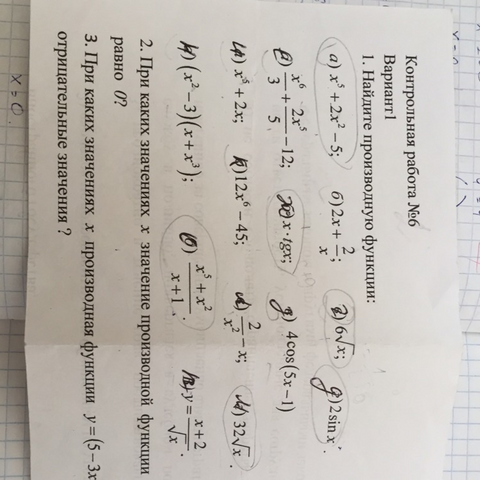 Контрольная работа №6
Вариант1
1. Найдите производную функции:
а) x⁵ + 2x² − 5; б) 2x + 2/x; 6√x; 2 sin x
x⁶/3 + 2x⁵/5 − 12; x · tgx; 4cos(5x − 1)
x⁵ + 2x; 12x⁶ − 45; 2/x² − x; 32√x.
(x² − 3)(x + x³); (x⁵ + x²)/(x + 1). y = (x + 2)/√x.
2. При каких значениях x значение производной функции
равно 0?
3. При каких значениях x производная функции y = (5 − 3x
отрицательные значения ?
x = 0